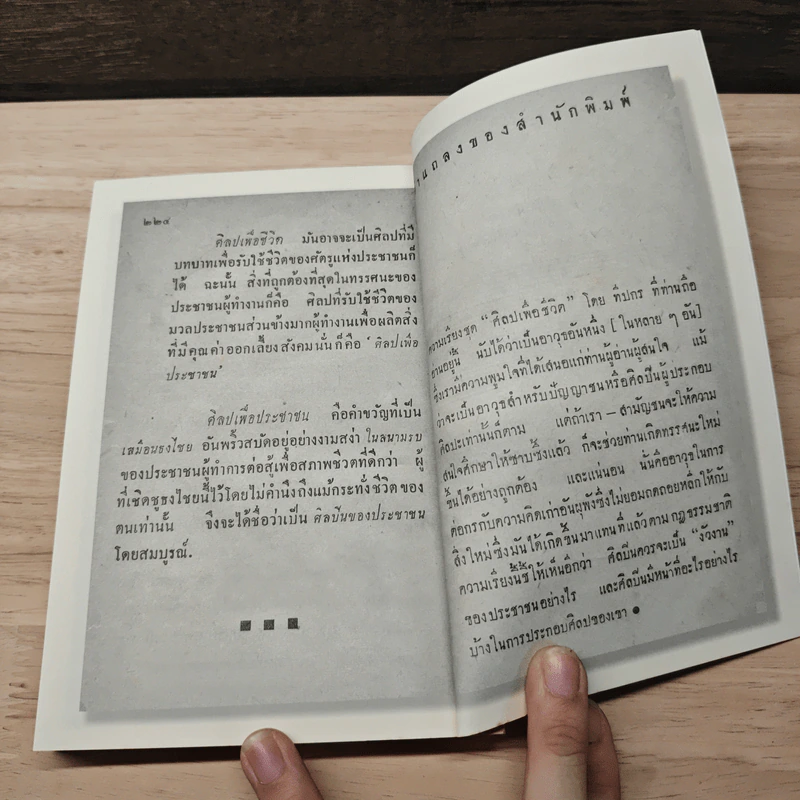 ๒๒๔
ศิลปเพื่อชีวิต มันอาจจะเป็นศิลปที่มี
บทบาทเพื่อรับใช้ชีวิตของศัตรูแห่งประชาชนก็
ได้ ฉะนั้น สิ่งที่ถูกต้องที่สุดในทรรศนะของ
ประชาชนผู้ทำงานก็คือ ศิลปที่รับใช้ชีวิตของ
มวลประชาชนส่วนข้างมากผู้ทำงานเพื่อผลิตสิ่ง
ที่มีคุณค่าออกเลี้ยงสังคมนั่นก็คือ ‘ศิลปเพื่อ
ประชาชน’
ศิลปเพื่อประชาชน คือคำขวัญที่เป็น
เสมือนธงไชย อันพริ้วสบัดอยู่อย่างงามสง่า ในสนามรบ
ของประชาชนผู้ทำการต่อสู้เพื่อสภาพชีวิตที่ดีกว่า ผู้
ที่เชิดชูธงไชยนี้ไว้โดยไม่คำนึงถึงแม้กระทั่งชีวิตของ
ตนเท่านั้น จึงจะได้ชื่อว่าเป็น ศิลปินของประชาชน
โดยสมบูรณ์.
แถลงของสำนักพิมพ์
ความเรียงชุด “ศิลปเพื่อชีวิต” โดย ทีปกร ที่ท่านถือ
อ่านอยู่นี้ นับได้ว่าเป็นอาวุธอันหนึ่ง [ในหลาย ๆ อัน]
ซึ่งเรามีความพูมใจที่ได้เสนอแก่ท่านผู้อ่านผู้สนใจ แม้
ว่าจะเป็นอาวุธสำหรับปัญญาชนหรือศิลปินผู้ประกอบ
ศิลปะเท่านั้นก็ตาม แต่ถ้าเรา—สามัญชนจะให้ความ
สนใจศึกษาให้ซาบซึ้งแล้ว ก็จะช่วยท่านเกิดทรรศนะใหม่
ขึ้นได้อย่างถูกต้อง และแน่นอน นั่นคืออาวุธในการ
ต่อกรกับความคิดเก่าอันผุพังซึ่งไม่ยอมถดถอยหลีกให้กับ
สิ่งใหม่ซึ่งมันได้เกิดขึ้นมาแทนที่แล้วตามกฎธรรมชาติ
ความเรียงนี้ชี้ให้เห็นอีกว่า ศิลปินควรจะเป็น “งัวงาน”
ของประชาชนอย่างไร และศิลปินมีหน้าที่อะไรอย่างไร
บ้างในการประกอบศิลปของเขา